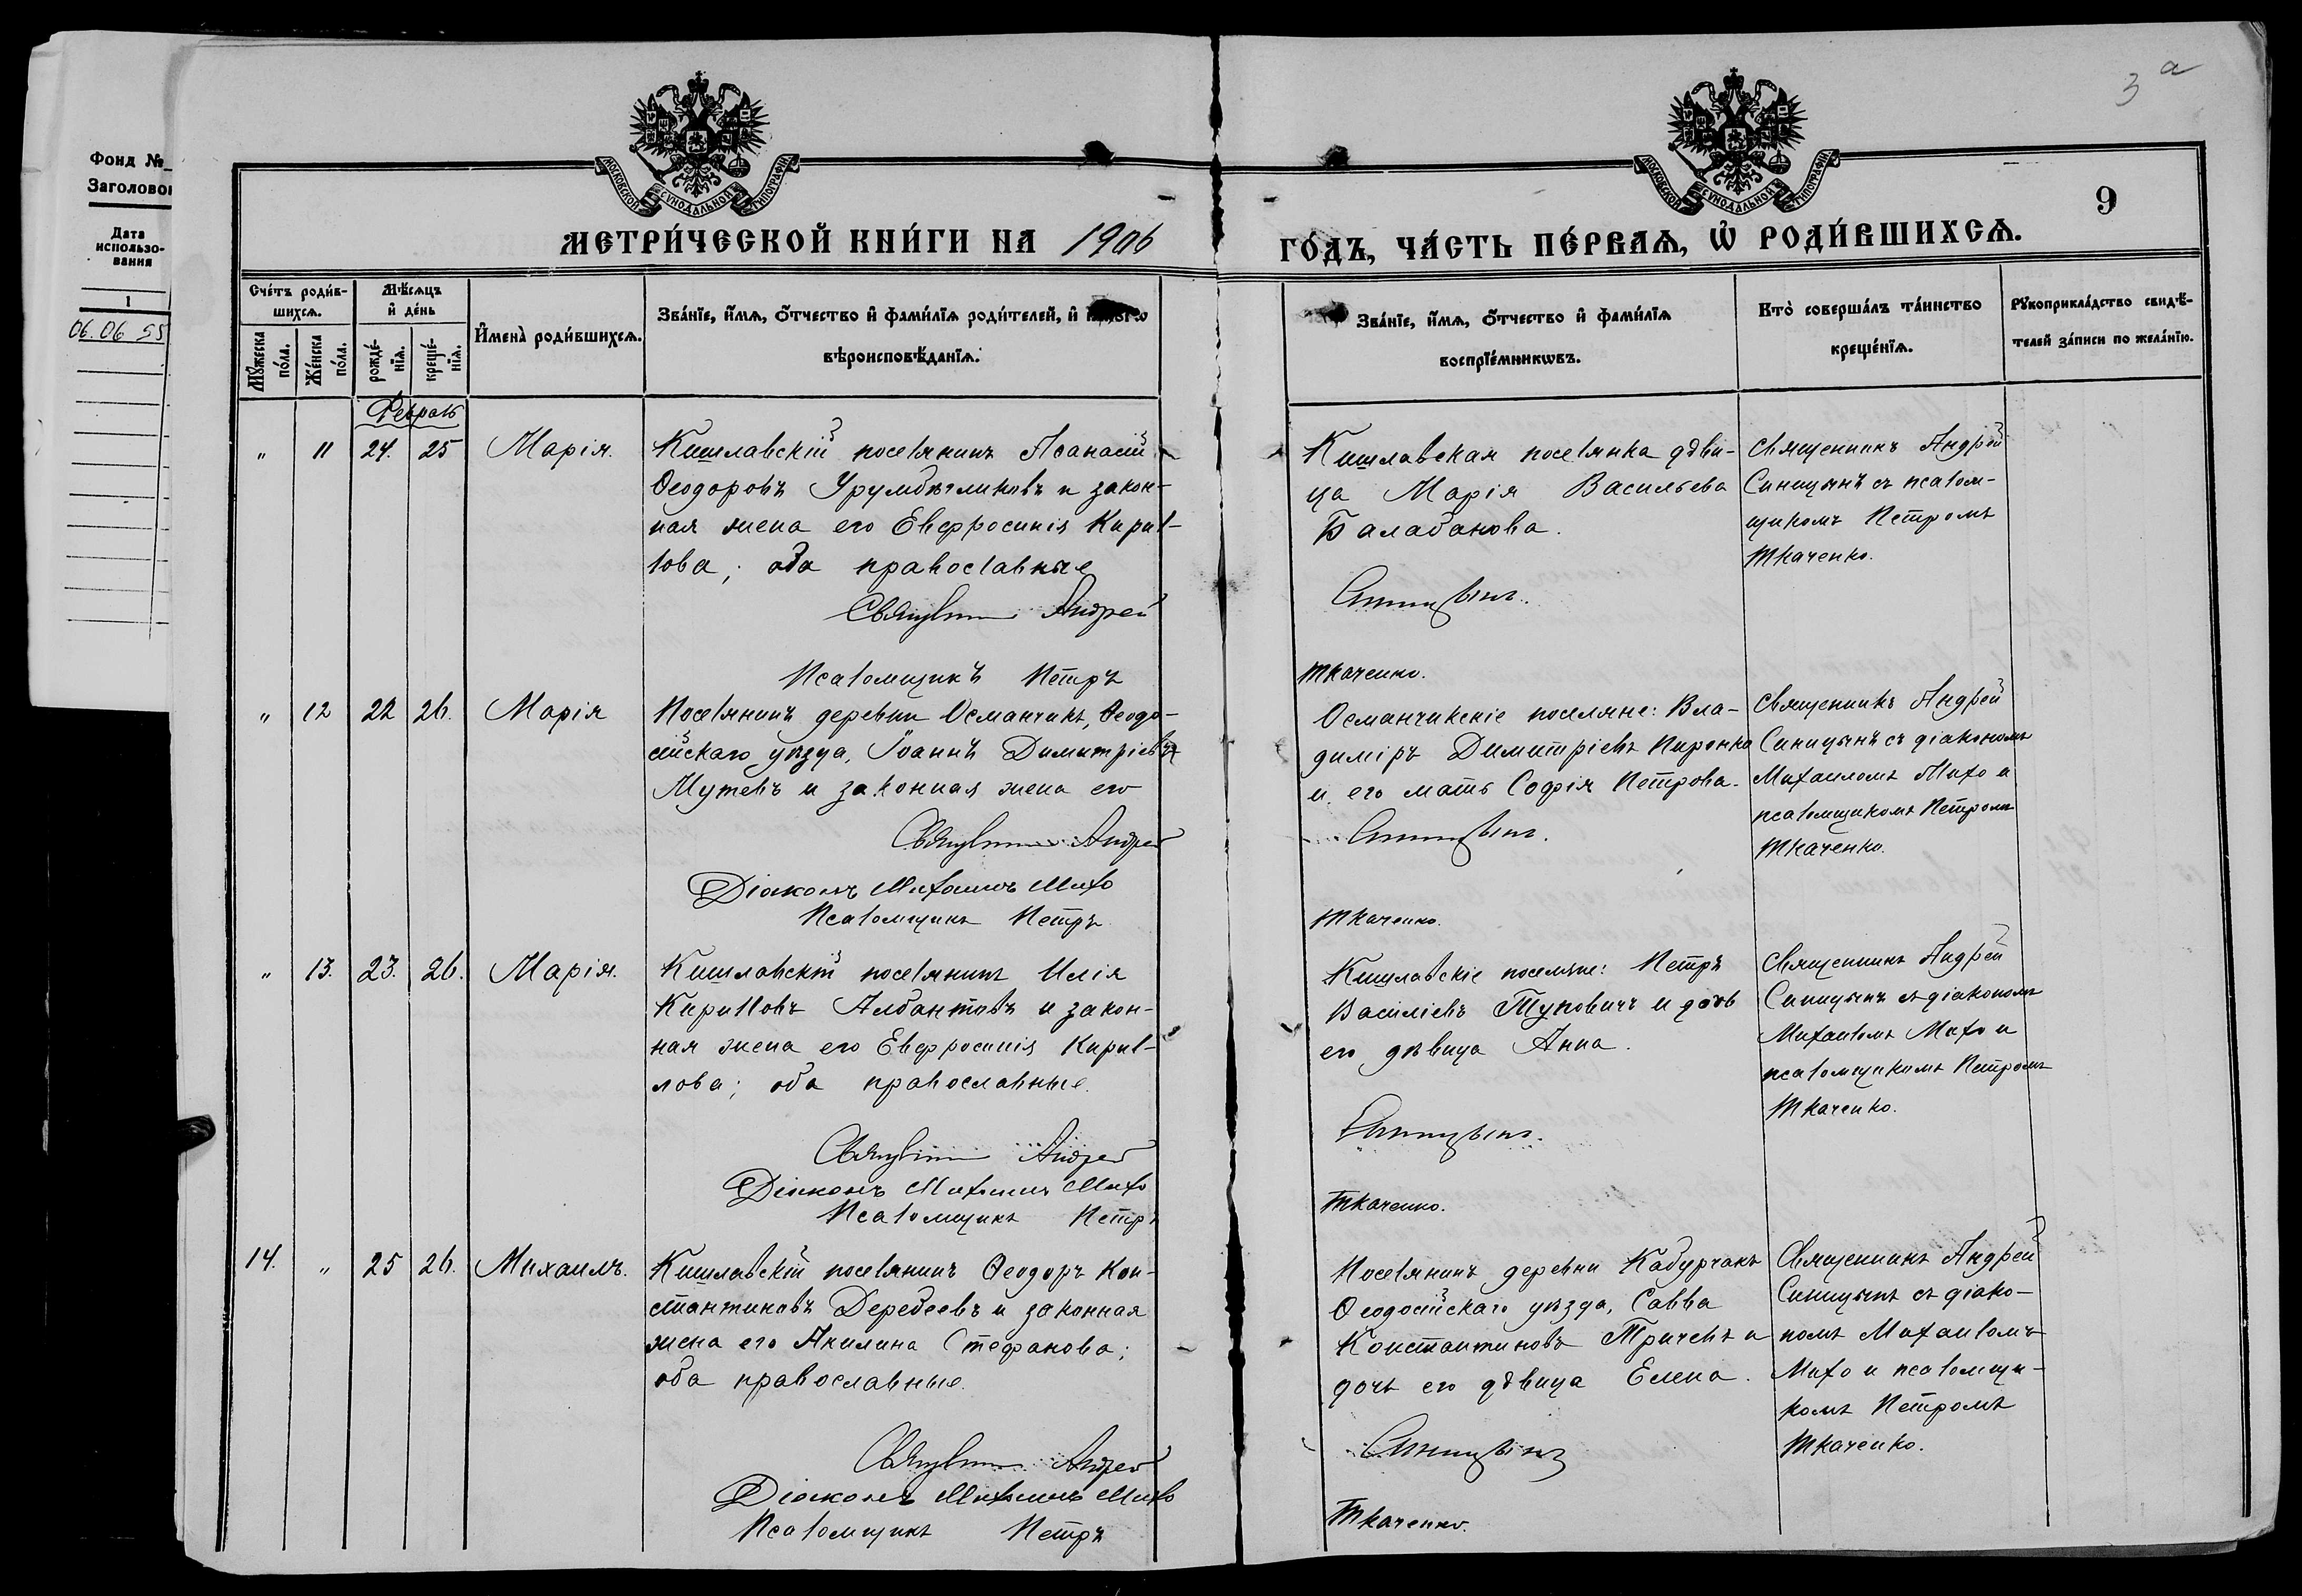 Фонд №
Заголовок
Дата
использо-
вания
1
06.06 55
3 а
9
МОСКОВСКОЙ СУНОДАЛЬНОЙ ТИПОГРАФІИ
МОСКОВСКОЙ СУНОДАЛЬНОЙ ТИПОГРАФІИ
МЕТРИ́ЧЕСКОЙ КНИ́ГИ НА 1906
ГО́ДЪ, ЧА́СТЬ ПЕ́РВАѦ, Ѡ РОДИ́ВШИХСѦ.
Сче́тъ роди́в-
шихсѧ.
Мꙋ́жеска
по́ла.
Же́нска
по́ла.
Мѣ́сѧцъ
и҆ де́нь
рожде́-
нїѧ.
креще́-
нїѧ.
И҆мена̀ роди́вшихсѧ.
Зва́нїе, и҆́мѧ, ѻ҆́тчество и҆ фами́лїѧ роди́телей, и҆
вѣроисповѣ́данїѧ.
Зва́нїе, и҆́мѧ, ѻ҆́тчество и҆ фами́лїѧ
воспрїе́мникѡвъ.
Кто̀ соверша́лъ та́инство
креще́нїѧ.
Рꙋкоприкла́дство свидѣ́-
телей за́писи по жела́нїю.
Февраль
" 11 24. 25 Марія.
Кишлавскій поселянинъ Аѳанасій
Ѳеодоровъ Урумбѣгликовъ и закон-
ная жена его Евфросинія Кирил-
лова; оба православные
Священникъ Андрей
Псаломщикъ Петръ
Кишлавская поселянка дѣви-
ца Марія Васильева
Балабанова.
Синицынъ.
Ткаченко.
Священникъ Андрей
Синицынъ съ псалом-
щикомъ Петромъ
Ткаченко.
" 12 22 26. Марія
Поселянинъ деревни Османчикъ, Ѳеодо-
сійскаго уѣзда, Іоаннъ Димитріевъ
Мутевъ и законная жена его
Священникъ Андрей
Діаконъ Михаилъ Михо
Псаломщикъ Петръ
Османчикскіе поселяне: Вла-
диміръ Димитріевъ Пиронко
и его мать Софія Петрова.
Синицынъ.
Ткаченко.
Священникъ Андрей
Синицынъ съ діакономъ
Михаиломъ Михо и
псаломщикомъ Петромъ
Ткаченко.
" 13. 23. 26. Марія.
Кишлавскій поселянинъ Илія
Кирилловъ Албантовъ и закон-
ная жена его Евфросинія Кирил-
лова; оба православные.
Священникъ Андрей
Діаконъ Михаилъ Михо
Псаломщикъ Петръ
Кишлавскіе поселяне: Петръ
Василіевъ Туковичъ и дочь
его дѣвица Анна.
Синицынъ.
Ткаченко.
Священникъ Андрей
Синицынъ съ діакономъ
Михаиломъ Михо и
псаломщикомъ Петромъ
Ткаченко.
14. " 25 26. Михаилъ.
Кишлавскій поселянинъ Ѳеодоръ Кон-
стантиновъ Деребеевъ и законная
жена его Акилина Стефанова;
оба православные.
Священникъ Андрей
Діаконъ Михаилъ Михо
Псаломщикъ Петръ
Поселянинъ деревни Кабурчакъ
Ѳеодосійскаго уѣзда, Савва
Константиновъ Тричевъ и
дочь его дѣвица Елена.
Синицынъ
Ткаченко.
Священникъ Андрей
Синицынъ съ діако-
номъ Михаиломъ
Михо и псаломщи-
комъ Петромъ
Ткаченко.